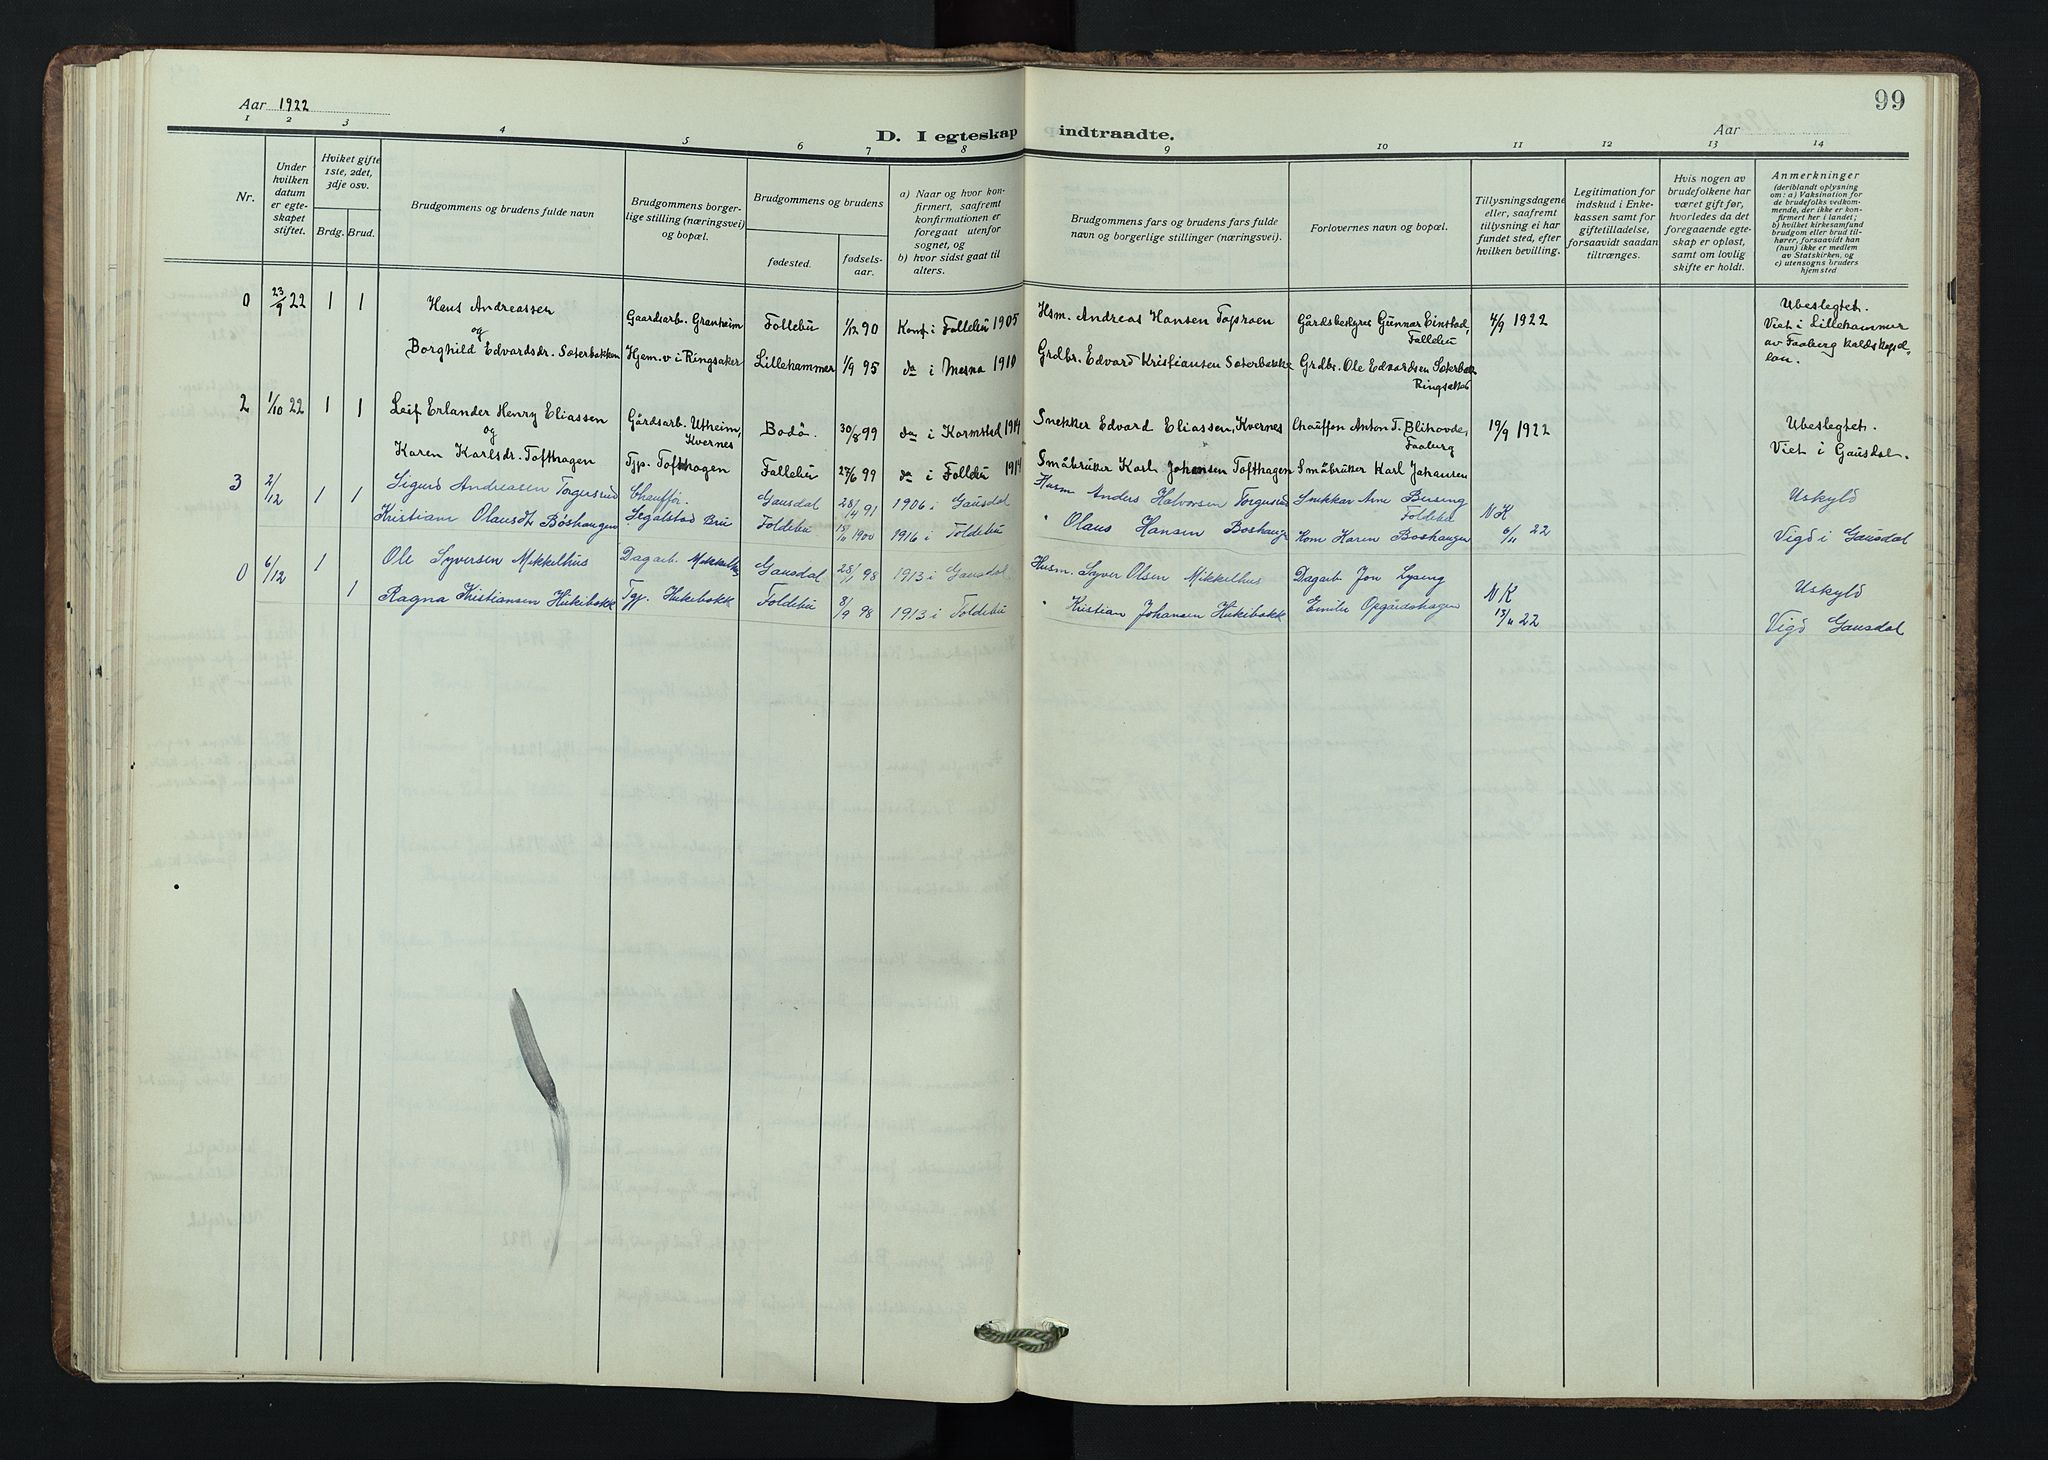 99
Aar 1922
D. I egteskap indtraadte.
Aar
1 2 3 4 5 6 7 8 9 10 11 12 13 14
Nr.
Under hvilken datum er egteskapet stiftet.
Hvilket gifte 1ste, 2det, 3dje osv.
Brdg. Brud.
Brudgommens og brudens fulde navn
Brudgommens borgerlige stilling (næringsvei) og bopæl.
Brudgommens og brudens
fødested. fødselsaar.
a) Naar og hvor konfirmert, saafremt konfirmationen er foregaat utenfor sognet, og
b) hvor sidst gaat til alters.
Brudgommens fars og brudens fars fulde navn og borgerlige stillinger (næringsvei).
Forlovernes navn og bopæl.
Tillysningsdagene eller, saafremt tillysning ei har fundet sted, efter hvilken bevilling.
Legitimation for indskud i Enkekassen samt for giftetilladelse, forsaavidt saadan tiltrænges.
Hvis nogen av brudefolkene har været gift før, hvorledes da det foregaaende egteskap er opløst, samt om lovlig skifte er holdt.
Anmerkninger
(deriblandt oplysning om: a) Vaksination for de brudefolks vedkommende, der ikke er konfirmert her i landet; b) hvilket kirkesamfund brudgom eller brud tilhører, forsaavidt han (hun) ikke er medlem av Statskirken, og c) utensogns bruders hjemsted
0 23/9 22 1 1 Hans Andreassen Gaardsarb. Granheim Follebu 1/12 90 Konf. i Follebu 1905 Hsm. Andreas Hansen Toproen Gårdsbestyrer Gunnar Einstad, Follebu 4/9 1922 Ubeslegtet.
og
Borghild Edvardsdr. Sæterbakken Hjem. v i Ringsaker Lillehammer 1/9 95 do i Mesna 1910 Grdbr. Edvard Kristiansen Sæterbakke Grdbr. Ole Edvardsen Sæterbak Ringsaker Viet i Lillehammer av Faaberg
2 1/10 22 1 1 Leif Erlander Henry Eliassen Gårdsarb. Utheim, Kvernes Bodö. 30/8 99 do i Karmstad 1914 Snekker Edvard Eliassen, Kvernes Chauffør Anton T. Blihovde, Faaberg 19/9 1922 Ubeslegtet.
og
Karen Karlsdr. Tofthagen Tjp. Tofthagen Follebu 27/6 99 do i Follebu 1914 Småbruker Karl Johansen Tofthagen Småbruker Karl Johansen Viet i Gausdal.
3 2/12 1 1 Sigurd Andreasen Torgerstud Chauffør. Gausdal 28/4 91 1906 i Gausdal Husm Anders Halvorsen Torgerstud Snikkar Arne Bersing Foldebu NK Uskyld
Kristiam Olausdt Böshaugen Segalstad Bru Foldebu 15/11 1900 1916 i Foldebu " Olaus Hansen Boshauge Kom Karen Boshaugen 6/11 22 Vigd i Gausdal
0 6/12 1 Ole Syversen Mikkelhus Dagarb. Mikkelhs Gausdal 28/1 98 1913 i Gausdal Husm. Syver Olsen Mikkelhus Dagarb Jon Lysing NK Uskyld
1 Ragna Kristiansen Hukibakk Tgp. Hukibakk Foldebu 8/9 98 1913 i Foldebu " Kristian Johansen Hukibakk Emilie Opgårdshagen 13/11 22 Vigd Gausdal